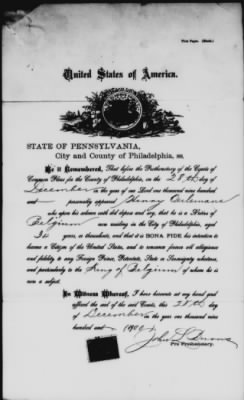 First Paper.
United States of America.
STATE OF PENNSYLVANIA,
City and County of Philadelphia, ss.
Be it Remembered, That before the Prothonotary of the Courts of
Common Pleas for the County of Philadelphia, on the 28th day of
December in the year of our Lord one thousand nine hundred
and — personally appeared Henry
who upon his solemn oath did depose and say, that he is a Native of
Belgium now residing in the City of Philadelphia, aged
34 years, or thereabouts, and that it is BONA FIDE his intention to
become a Citizen of the United States, and to renounce forever all allegiance
and fidelity to any Foreign Prince, Potentate, State or Sovereignty whatever,
and particularly to the King of Belgium of whom he is
now a subject.
In Witness Whereof, I have hereunto set my hand and
affixed the seal of the said Courts, this 28th day
of December in the year one thousand nine
hundred and — 1900
John L.
Pro Prothonotary.